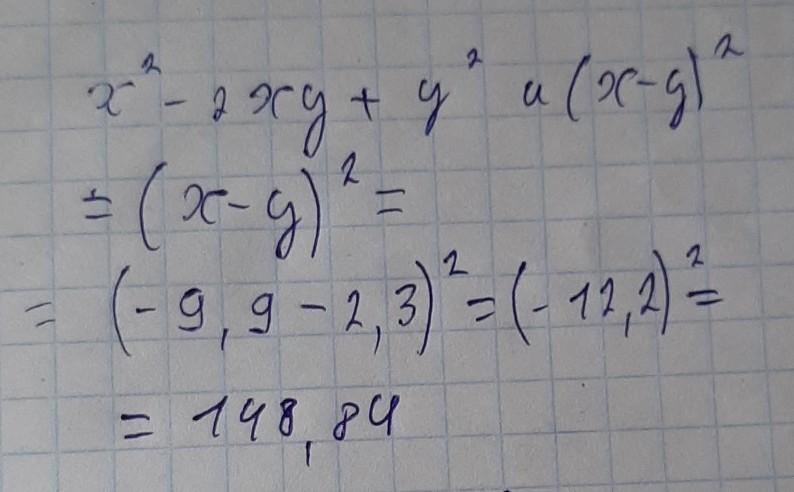 x² - 2xy + y² и (x-y)²
= (x-y)² =
= (-9,9 - 2,3)² = (-12,2)² =
= 148,84